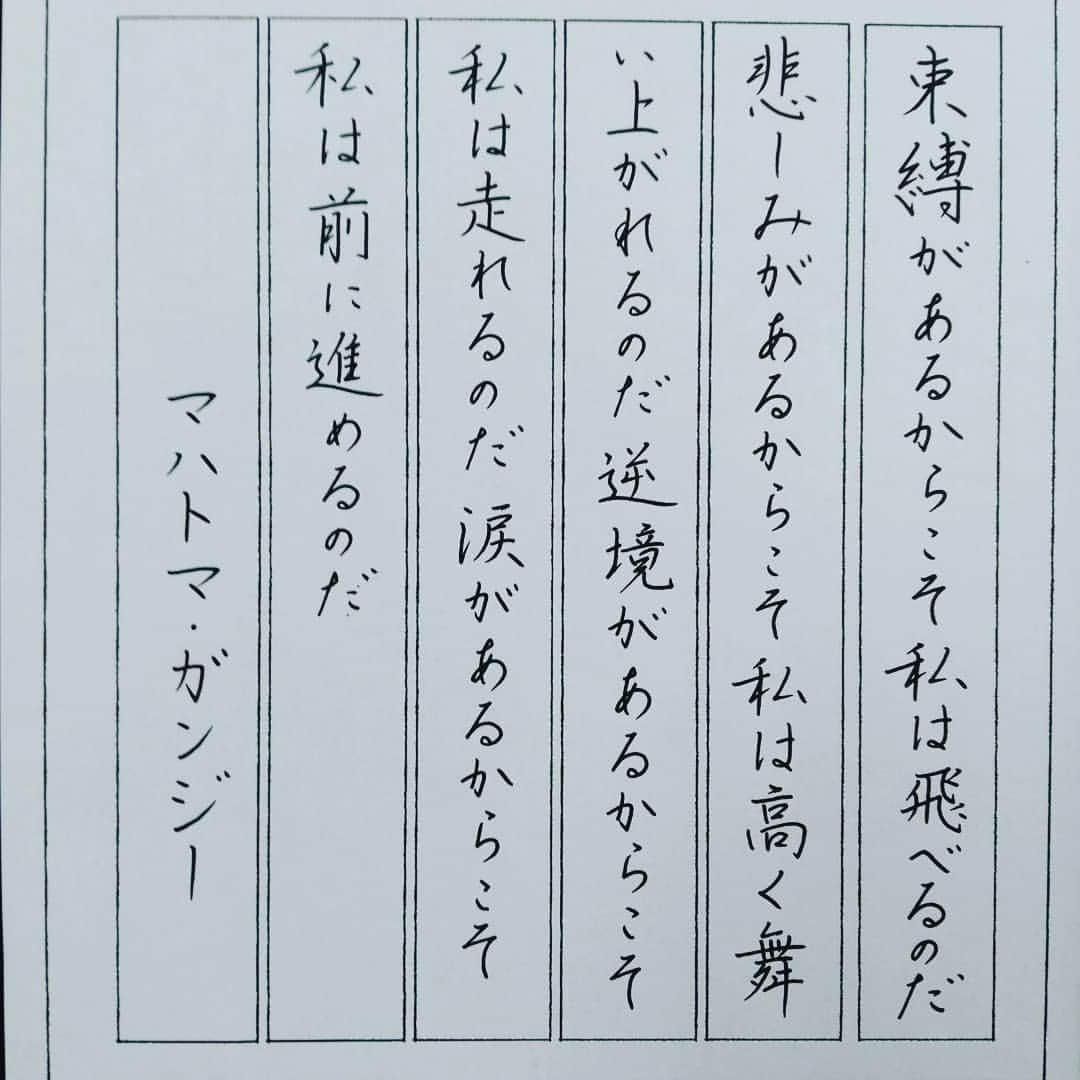 束縛があるからこそ私は飛べるのだ
悲しみがあるからこそ私は高く舞
い上がれるのだ逆境があるからこそ
私は走れるのだ涙があるからこそ
私は前に進めるのだ
マハトマ・ガンジー